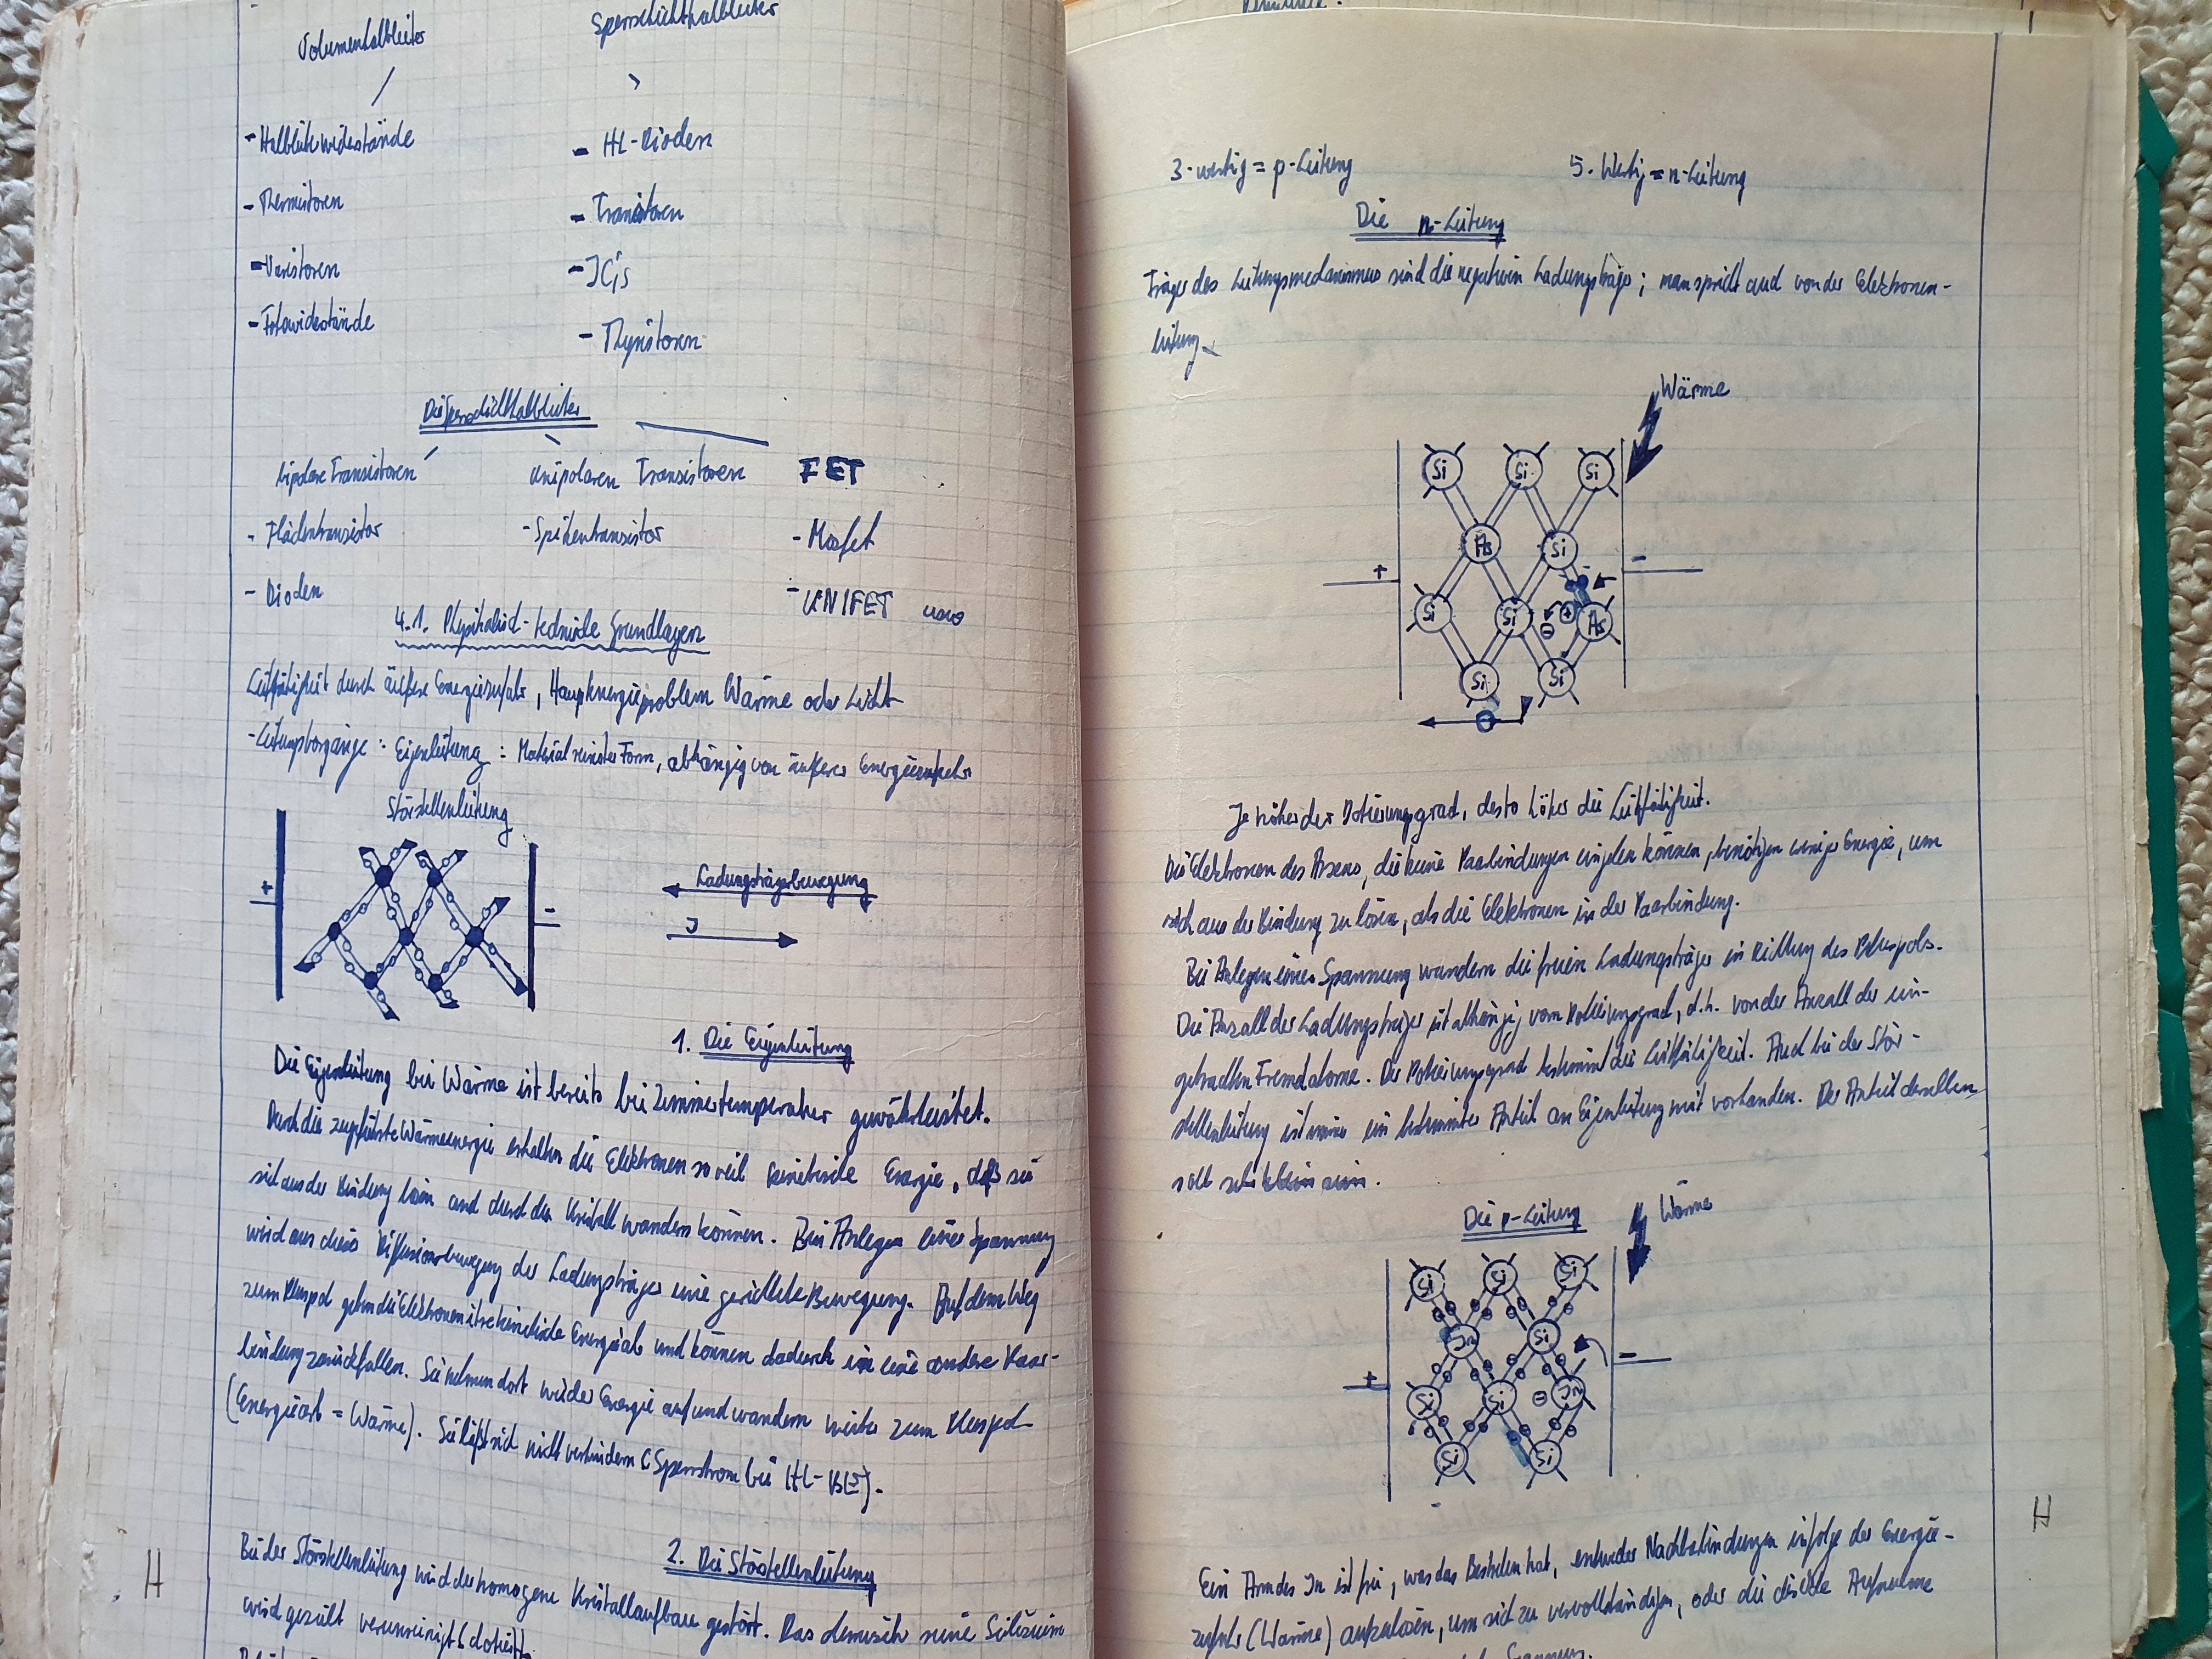 Volumenhalbleiter
Sperrschichthalbleiter
- Halbleiterwiderstände
- HL-Dioden
- Thermistoren
- Transistoren
- Varistoren
- IC's
- Fotowiderstände
- Thyristoren
Die Sperrschichthalbleiter
bipolare Transistoren
unipolaren Transistoren
FET
- Flächentransistor
- Spitzentransistor
- Mosfet
- Dioden
- UNIFET usw
4.1. Physikalisch-technische Grundlagen
Leitfähigkeit durch äußere Energiezufuhr, Hauptenergieproblem Wärme oder Licht
- Leitungsvorgänge: Eigenleitung: Material reinster Form, abhängig von äußerer Energiezufuhr
Störstellenleitung
+
-
Ladungsträgerbewegung
I
1. Die Eigenleitung
Die Eigenleitung bei Wärme ist bereits bei Zimmertemperatur gewährleistet.
Durch die zugeführte Wärmeenergie erhalten die Elektronen soviel kinetische Energie, daß sie
sich aus der Bindung lösen und durch den Kristall wandern können. Beim Anlegen einer Spannung
wird aus dieser Diffusionsbewegung der Ladungsträger eine gerichtete Bewegung. Auf dem Weg
zum Pluspol geben die Elektronen ihre kinetische Energie ab und können dadurch in eine andere Paar-
bindung zurückfallen. Sie nehmen dort wieder Energie auf und wandern weiter zum Pluspol
(Energieart = Wärme). Sie läßt sich nicht verhindern (Sperrstrom bei HL-BE).
2. Die Störstellenleitung
Bei der Störstellenleitung wird der homogene Kristallaufbau gestört. Das chemisch reine Silizium
wird gezielt verunreinigt (dotiert)
H
3-wertig = p-Leitung
5-Wertig = n-Leitung
Die n-Leitung
Träger des Leitungsmechanismus sind die negativen Ladungsträger; man spricht auch von der Elektronen-
leitung.
Wärme
Si Si Si
As Si
+
-
Si Si As
+
-
Si Si
Je höher der Dotierungsgrad, desto höher die Leitfähigkeit.
Die Elektronen des Arsens, die keine Paarbindungen eingehen können, benötigen weniger Energie, um
sich aus der Bindung zu lösen, als die Elektronen in der Paarbindung.
Bei Anlegen einer Spannung wandern die freien Ladungsträger in Richtung des Pluspols.
Die Anzahl der Ladungsträger ist abhängig vom Dotierungsgrad, d.h. von der Anzahl der ein-
gebrachten Fremdatome. Der Dotierungsgrad bestimmt die Leitfähigkeit. Auch bei der Stör-
stellenleitung ist immer ein bestimmter Anteil an Eigenleitung mit vorhanden. Der Anteil derselben
soll sehr klein sein.
Die p-Leitung
Wärme
Si Si Si
In Si
+
-
Si Si In
-
Si Si
H
Ein Arm des In ist frei, was das Bestreben hat, entweder Nachbarbindungen infolge der Energie-
zufuhr (Wärme) aufzulösen, um sich zu vervollständigen, oder die direkte Aufnahme